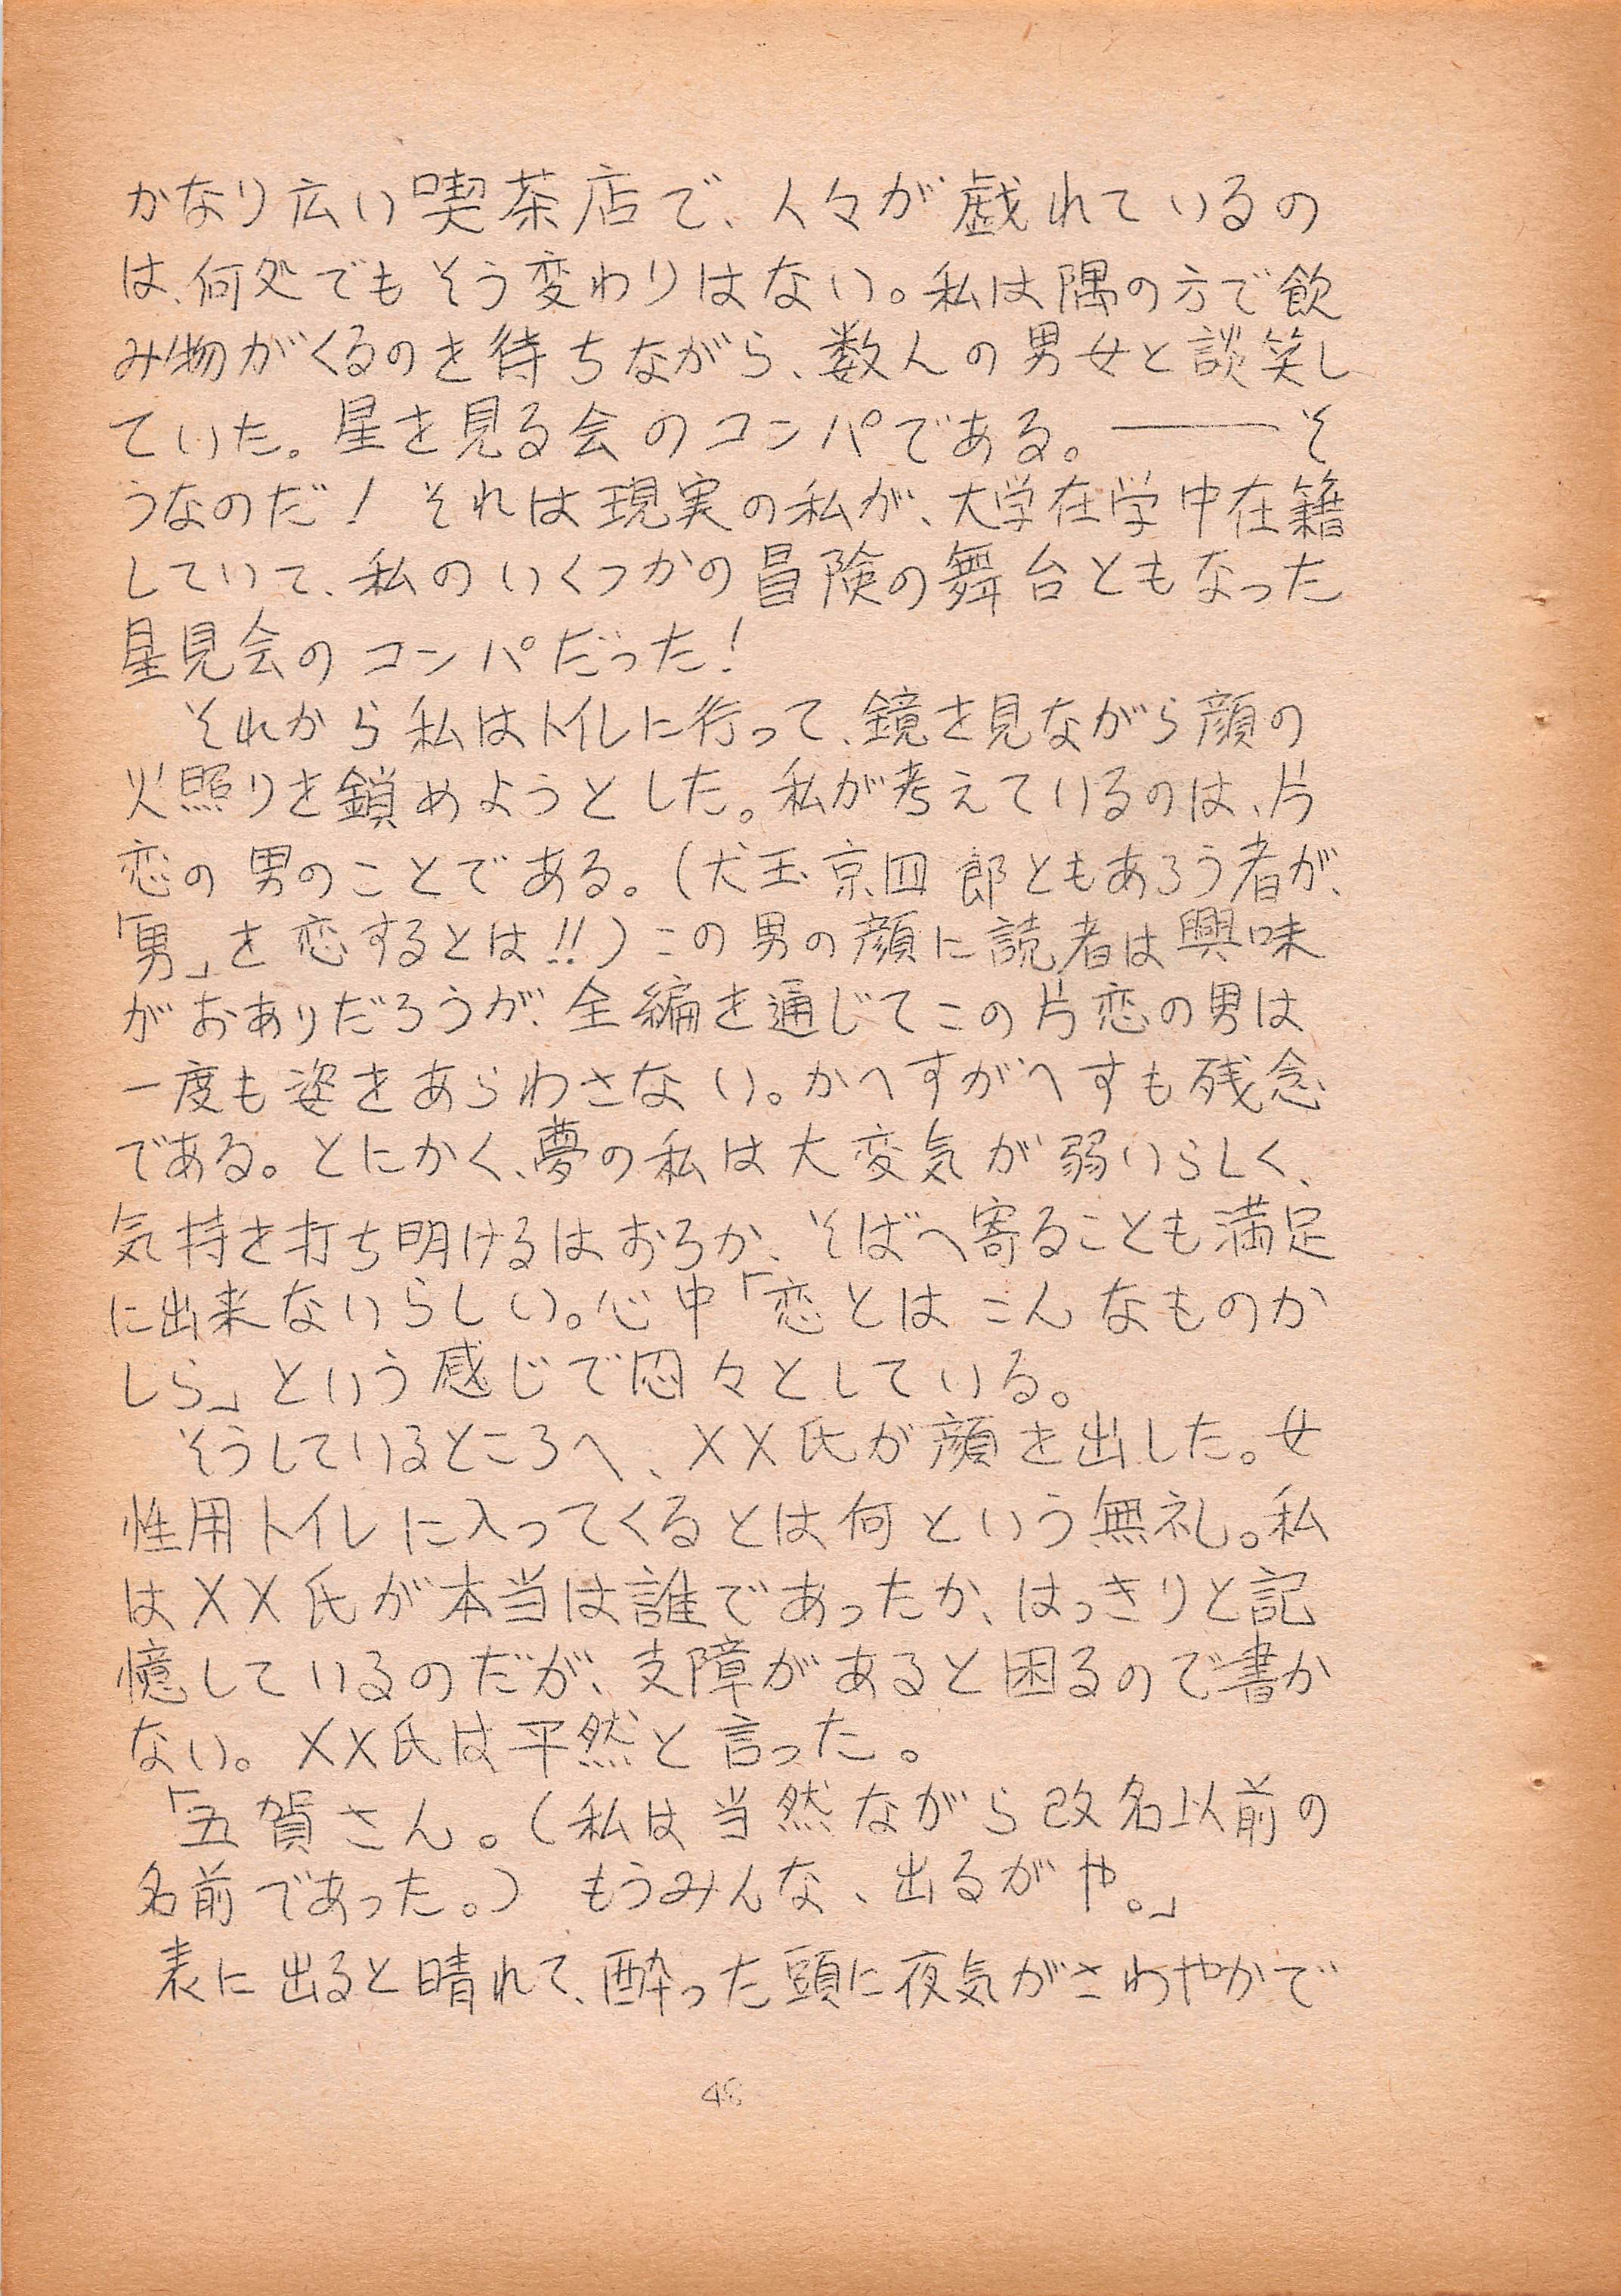 かなり広い喫茶店で、人々が戯れているの
は、何処でもそう変わりはない。私は隅の方で飲
み物がくるのを待ちながら、数人の男女と談笑し
ていた。星を見る会のコンパである。――そ
うなのだ! それは現実の私が、大学在学中在籍
していて、私のいくつかの冒険の舞台ともなった
星見会のコンパだった!
それから私はトイレに行って、鏡を見ながら顔の
火照りを鎮めようとした。私が考えているのは、片
恋の男のことである。(犬玉京四郎ともあろう者が、
「男」を恋するとは!!)この男の顔に読者は興味
がおありだろうが、全編を通じてこの片恋の男は
一度も姿をあらわさない。かへすがへすも残念
である。とにかく、夢の私は大変気が弱いらしく、
気持を打ち明けるはおろか、そばへ寄ることも満足
に出来ないらしい。心中「恋とはこんなものか
しら」という感じで悶々としている。
そうしているところへ、××氏が顔を出した。女
性用トイレに入ってくるとは何という無礼。私
は××氏が本当は誰であったか、はっきりと記
憶しているのだが、支障があると困るので書か
ない。××氏は平然と言った。
「五賀さん。(私は当然ながら改名以前の
名前であった。) もうみんな、出るがや。」
表に出ると晴れて、酔った頭に夜気がさわやかで